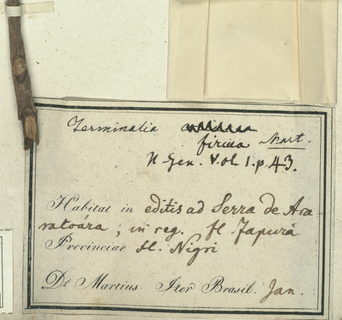 Terminalia
firma Mart.
N. Gen. Vol. 1. p. 43.
Habitat in editis ad Serra de Ara-
ratoára; in reg. fl. Japurá
Provinciae fl. Nigri
Dr Martius Iter Brasil. Jan.